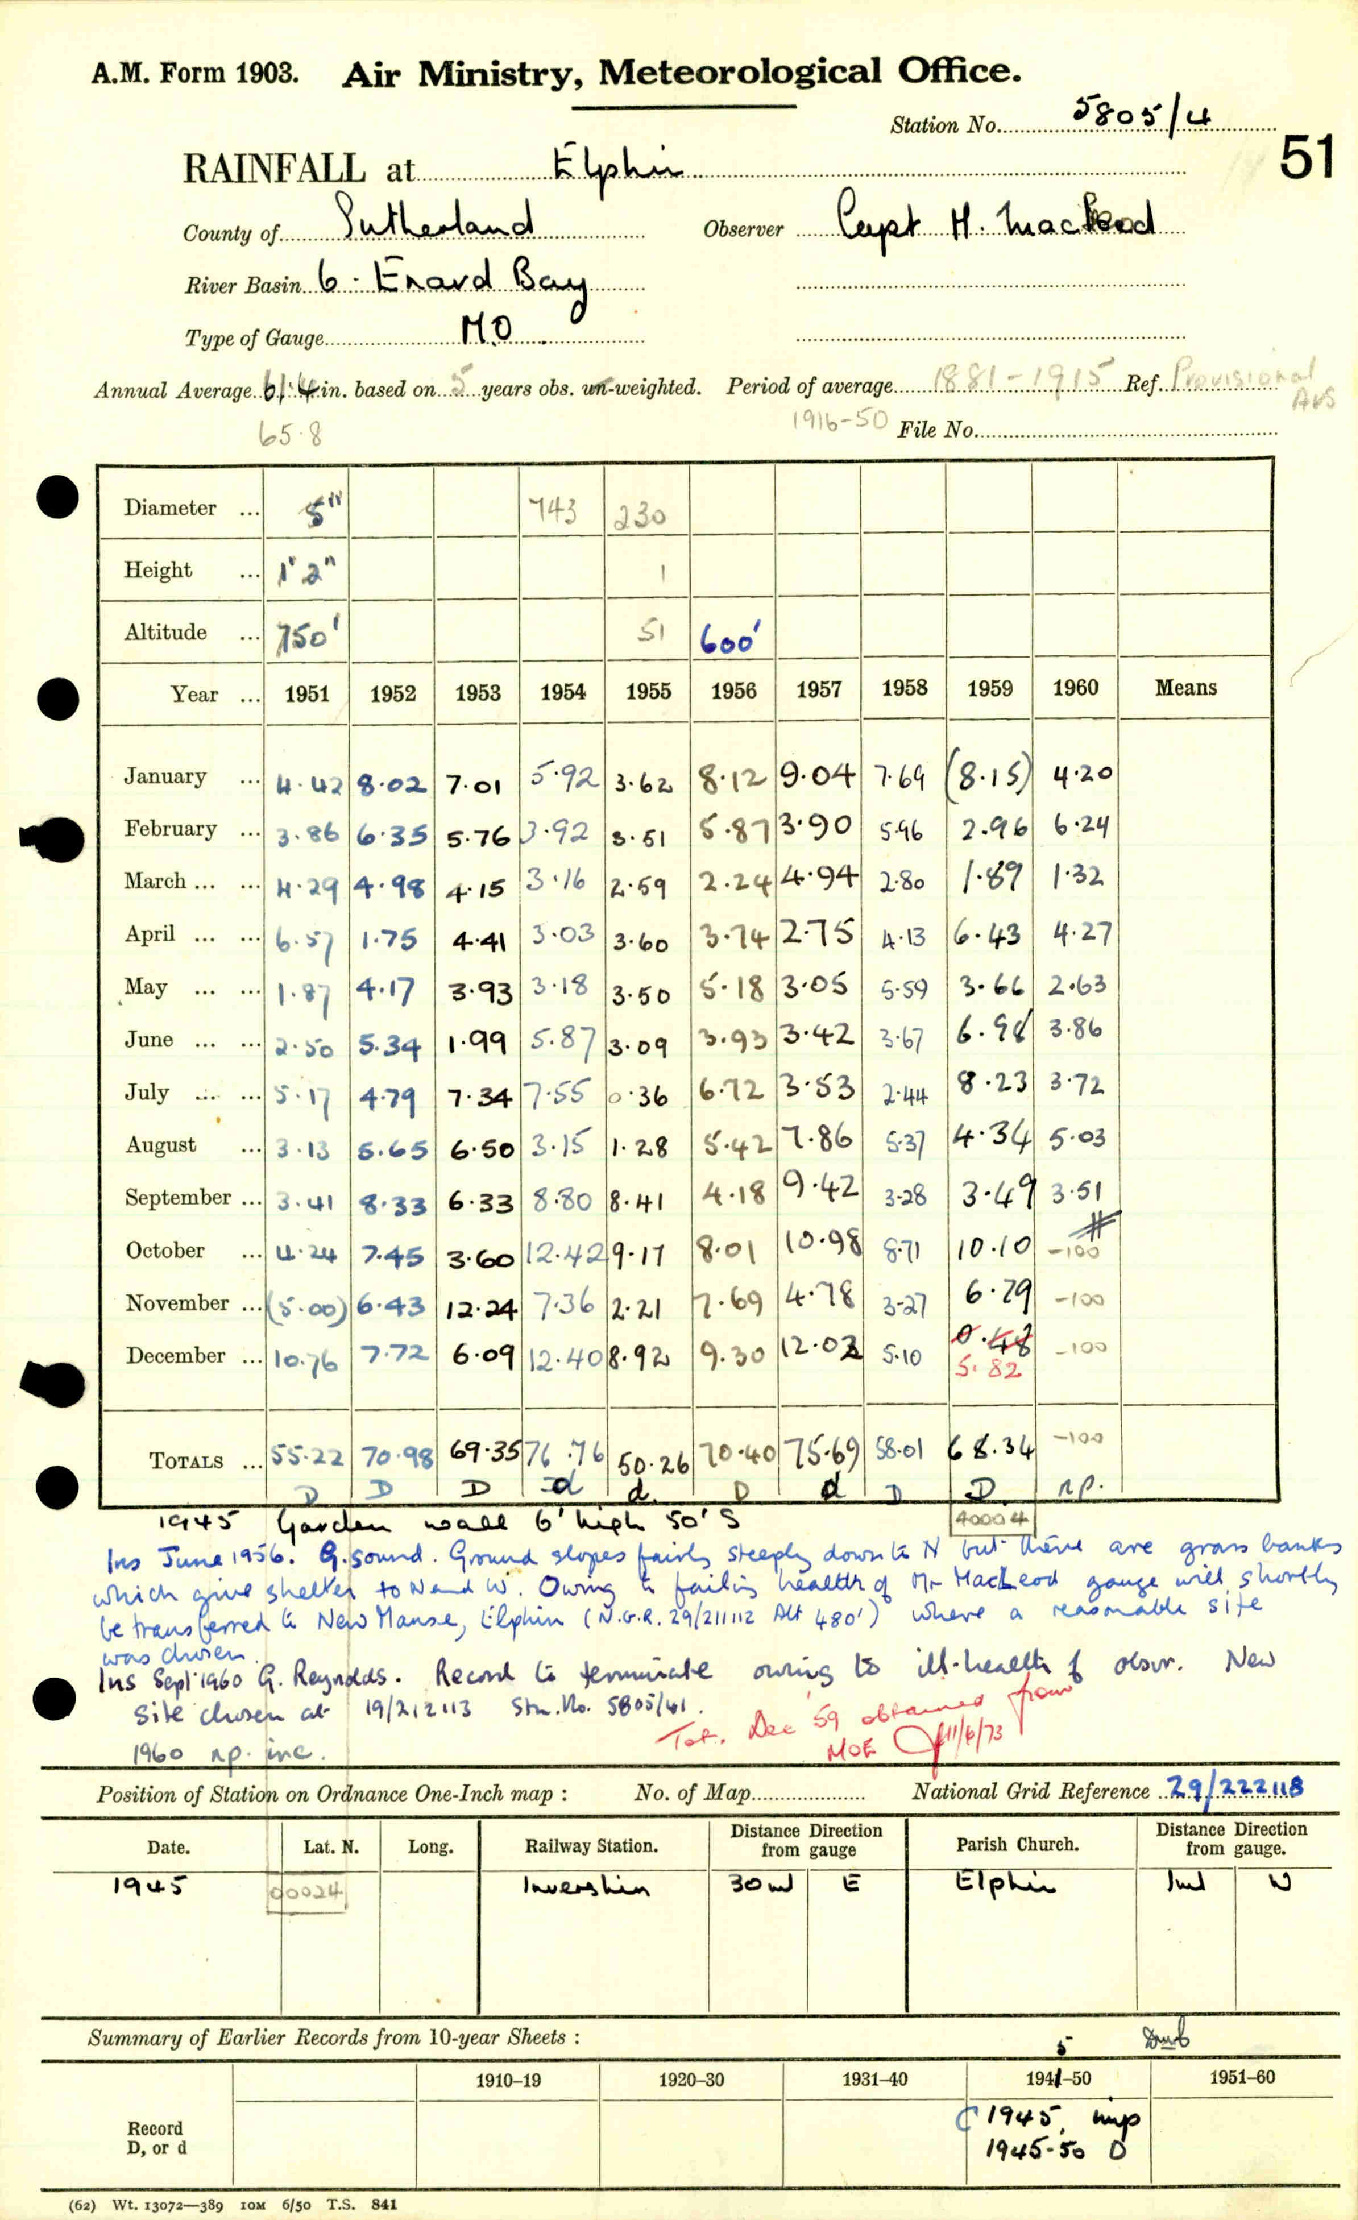 A.M. Form 1903. Air Ministry, Meteorological Office.
Station No. 5805/4
51
RAINFALL at Elphin
County of Sutherland Observer Capt H. MacLeod
River Basin 6. Enard Bay
Type of Gauge M.O.
Annual Average 61.4 in. based on 5 years obs. un-weighted. Period of average 1881-1915 Ref. Provisional Avs
65.8 1916-50 File No.
Diameter ... 5" 743 230
Height ... 1' 2" 1
Altitude ... 750' 51 600'
Year ... 1951 1952 1953 1954 1955 1956 1957 1958 1959 1960 Means
January ... 4.42 8.02 7.01 5.92 3.62 8.12 9.04 7.69 (8.15) 4.20
February ... 3.86 6.35 5.76 3.92 3.51 5.87 3.90 5.96 2.96 6.24
March ... ... 4.29 4.98 4.15 3.16 2.59 2.24 4.94 2.80 1.89 1.32
April ... ... 6.57 1.75 4.41 3.03 3.60 3.74 2.75 4.13 6.43 4.27
May ... ... 1.87 4.17 3.93 3.18 3.50 5.18 3.05 5.59 3.66 2.63
June ... ... 2.50 5.34 1.99 5.87 3.09 3.93 3.42 3.67 6.98 3.86
July ... ... 5.17 4.79 7.34 7.55 0.36 6.72 3.53 2.44 8.23 3.72
August ... 3.13 5.65 6.50 3.15 1.28 5.42 7.86 5.37 4.34 5.03
September ... 3.41 8.33 6.33 8.80 8.41 4.18 9.42 3.28 3.49 3.51
October ... 4.24 7.45 3.60 12.42 9.17 8.01 10.98 8.71 10.10 -100
November ... (5.00) 6.43 12.24 7.36 2.21 7.69 4.78 3.27 6.29 -100
December ... 10.76 7.72 6.09 12.40 8.92 9.30 12.02 5.10 0.48 -100
5.82
TOTALS ... 55.22 70.98 69.35 76.76 50.26 70.40 75.69 58.01 68.34 -100
D D D d d. D d D D n.p.
1945 Garden wall 6' high 50' S 40004
Ins June 1956. G. sound. Ground slopes fairly steeply down to N but there are grass banks
which give shelter to N and W. Owing to failing health of Mr MacLeod gauge will shortly
be transferred to New Manse, Elphin (N.G.R. 29/211112 Alt 480') where a reasonable site
was chosen.
Ins Sept 1960 G. Reynolds. Record to terminate owing to ill-health of obsr. New
site chosen at 19/212113 Stn. No. 5805/41.
Tot. Dec '59 obtained from
1960 n.p. inc.
MOE 11/6/73
Position of Station on Ordnance One-Inch map : No. of Map National Grid Reference 29/222118
Date. Lat. N. Long. Railway Station. Distance from Direction gauge Parish Church. Distance from Direction gauge.
1945 00024 Invershin 30ml E Elphin 1ml N
Summary of Earlier Records from 10-year Sheets :
5
1910–19 1920–30 1931–40 1941–50 1951–60
Record D, or d
C 1945 inp
1945-50 D
(62) Wt. 13072—389 10M 6/50 T.S. 841